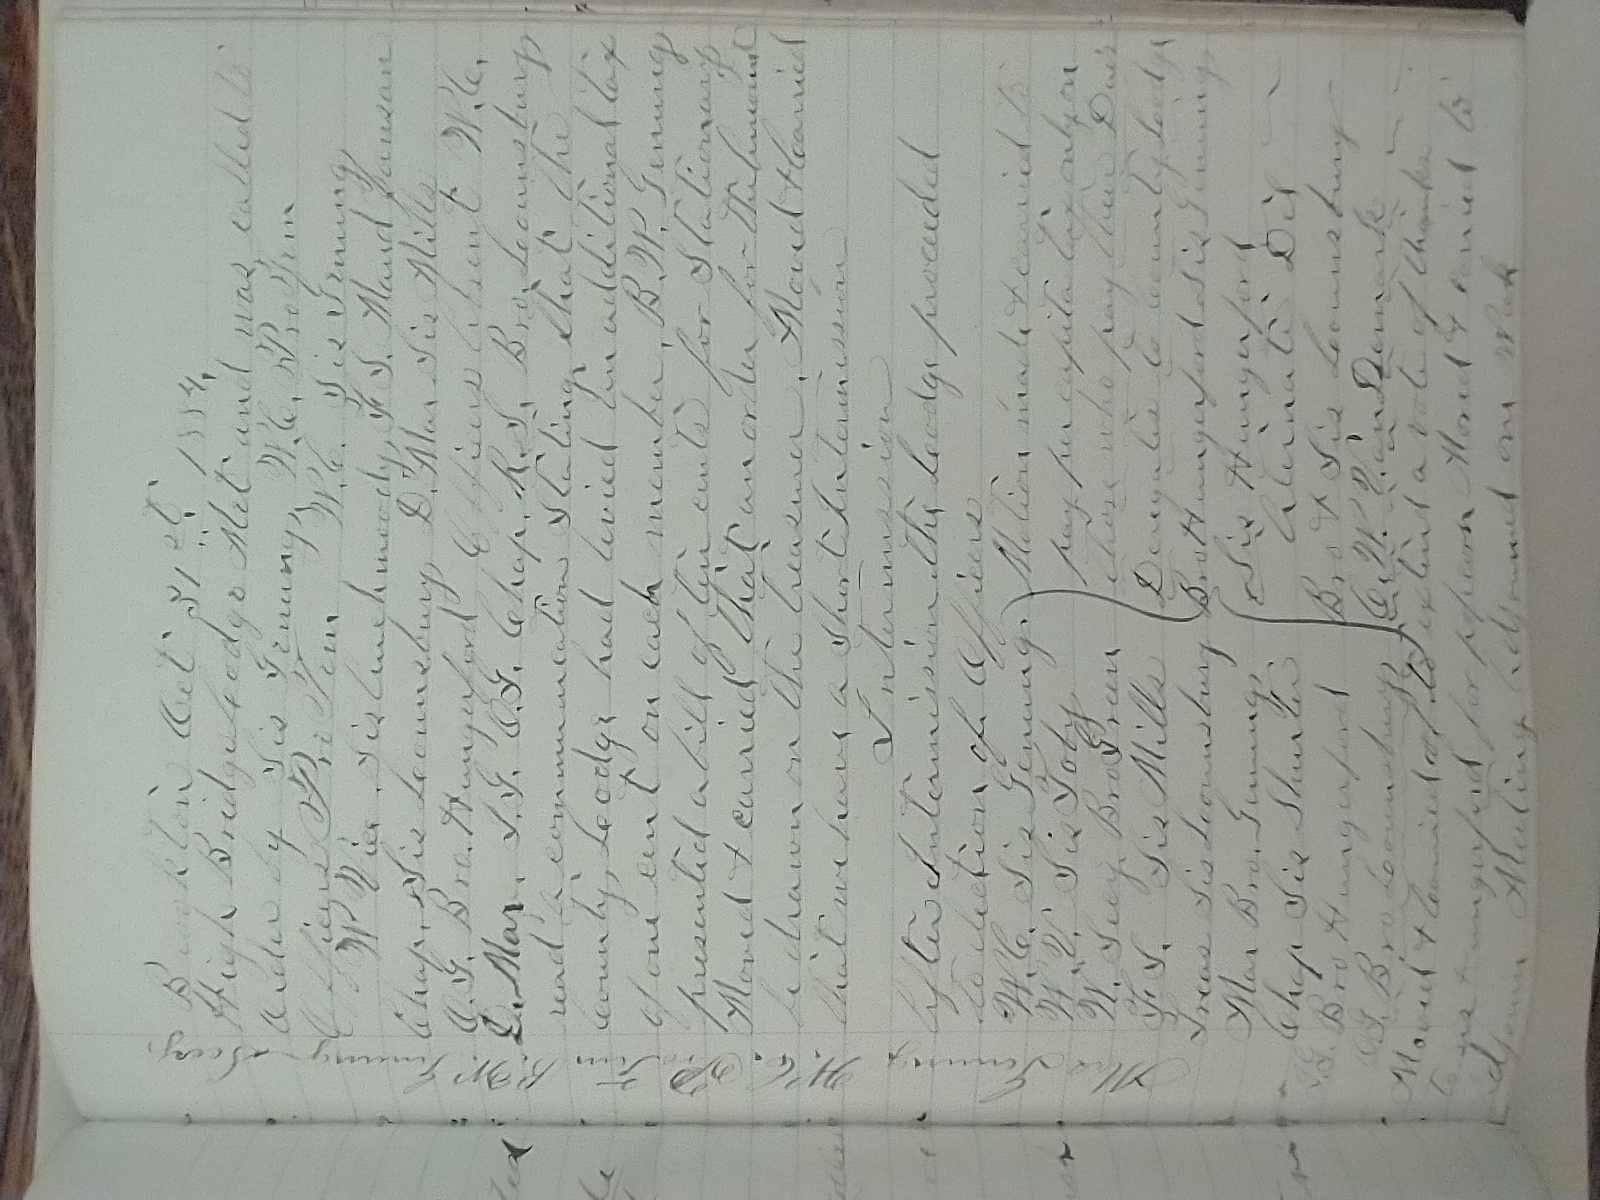 Brookton Oct 31st 1884,
High Bridge Lodge Met and was called to
Order by Sis Genung, W.C. Pro Tem
Officers Pro Tem W.C. Sis Genung,
W Vice Sis Auchmoody, F S. Maud Jansan
Chap, Sis Lounsbury, D. Mar Sis Mills
O.G. Bro. Hungerford Officers Absent W.C.
D. Mar, I.G. O.G. Chap, R.S. Bro. Lounsbury,
read a communication Stating that the
County, Lodge had levied an additional tax
of one cent on each member, B.W. Genung,
presented a bill of ten cents for Stationary
Moved & carried that an order for the Amount
be drawn on the treasurer. Moved & Carried
that we have a Short Intermission
Intermission
After Intermission the Lodge proceeded
to election of Officers
W.C. Sis Genung
W. V. Sis Toby
W. Secy Bro Green
F S. Sis Mills
Treas Sis Lounsbury
Mar Bro. Genung,
Chap Sis Shurter
I.G. Bro Hungerford
O.G. Bro Lounsbury,
Motion made & carried to
pay per capita tax only on
those who pay their Dues
Deregates to County Lodge
Bro Hungerford Sis Genung
Sis Hungerford
Alernate Del
Bro & Sis Lounsbury
C. W. VanDemark
Moved & Carried to extend a vote of thanks
to Hungerford for popcorn Moved & carried to
adjourn Meeting Adjourned one Week
Mrs Genung W.C. Pro Tem B.W. Genung Secy.